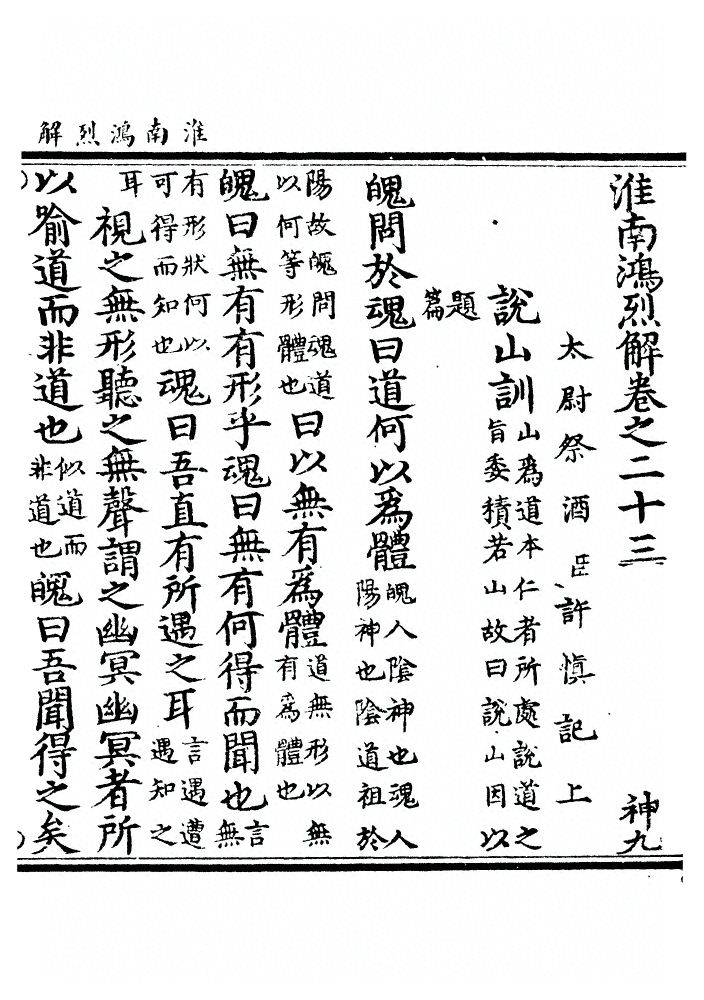 淮南鴻烈解
淮南鴻烈解卷之二十三 神九
太尉祭酒臣許慎記上
說山訓 山爲道本仁者所處說道之旨委積若山故曰說山因以
題篇
魄問於魂曰道何以爲體 魄人陰神也魂人陽神也陰道祖於
陽故魄問魂道以何等形體也 曰以無有爲體 道無形以無有爲體也
魄曰無有有形乎魂曰無有何得而聞也 言無
有形狀何以可得而知也 魂曰吾直有所遇之耳 言遇遭遇知之
耳 視之無形聽之無聲謂之幽冥幽冥者所
以喻道而非道也 似道而非道也 魄曰吾聞得之矣